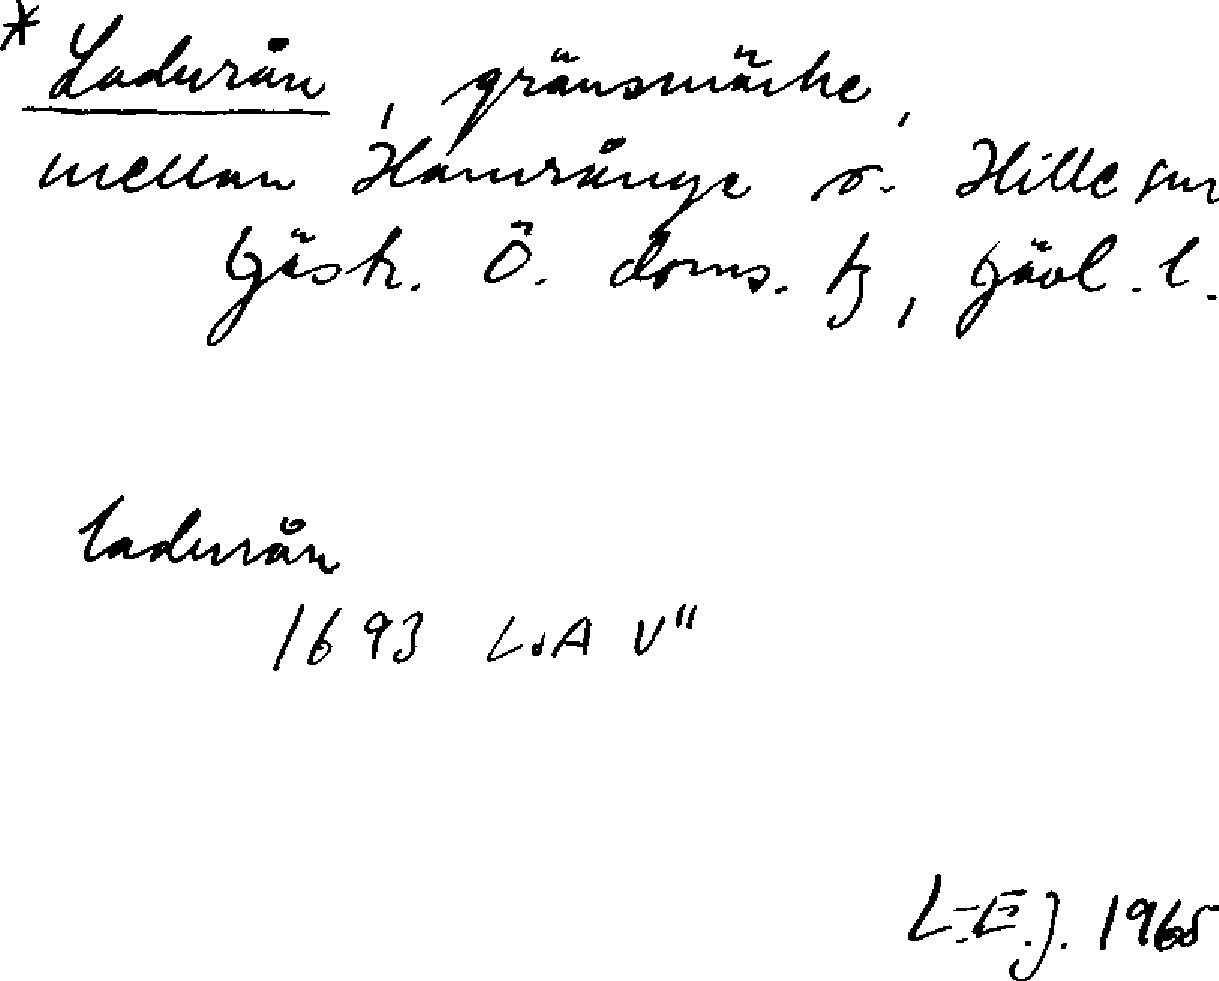 * Ladurån, gränsmärke,
mellan Hamrånge o. Hille snr
Gästr. Ö. doms. tg, Gävl. l.
ladurån
1693 LsA V"
L-E.J. 1965